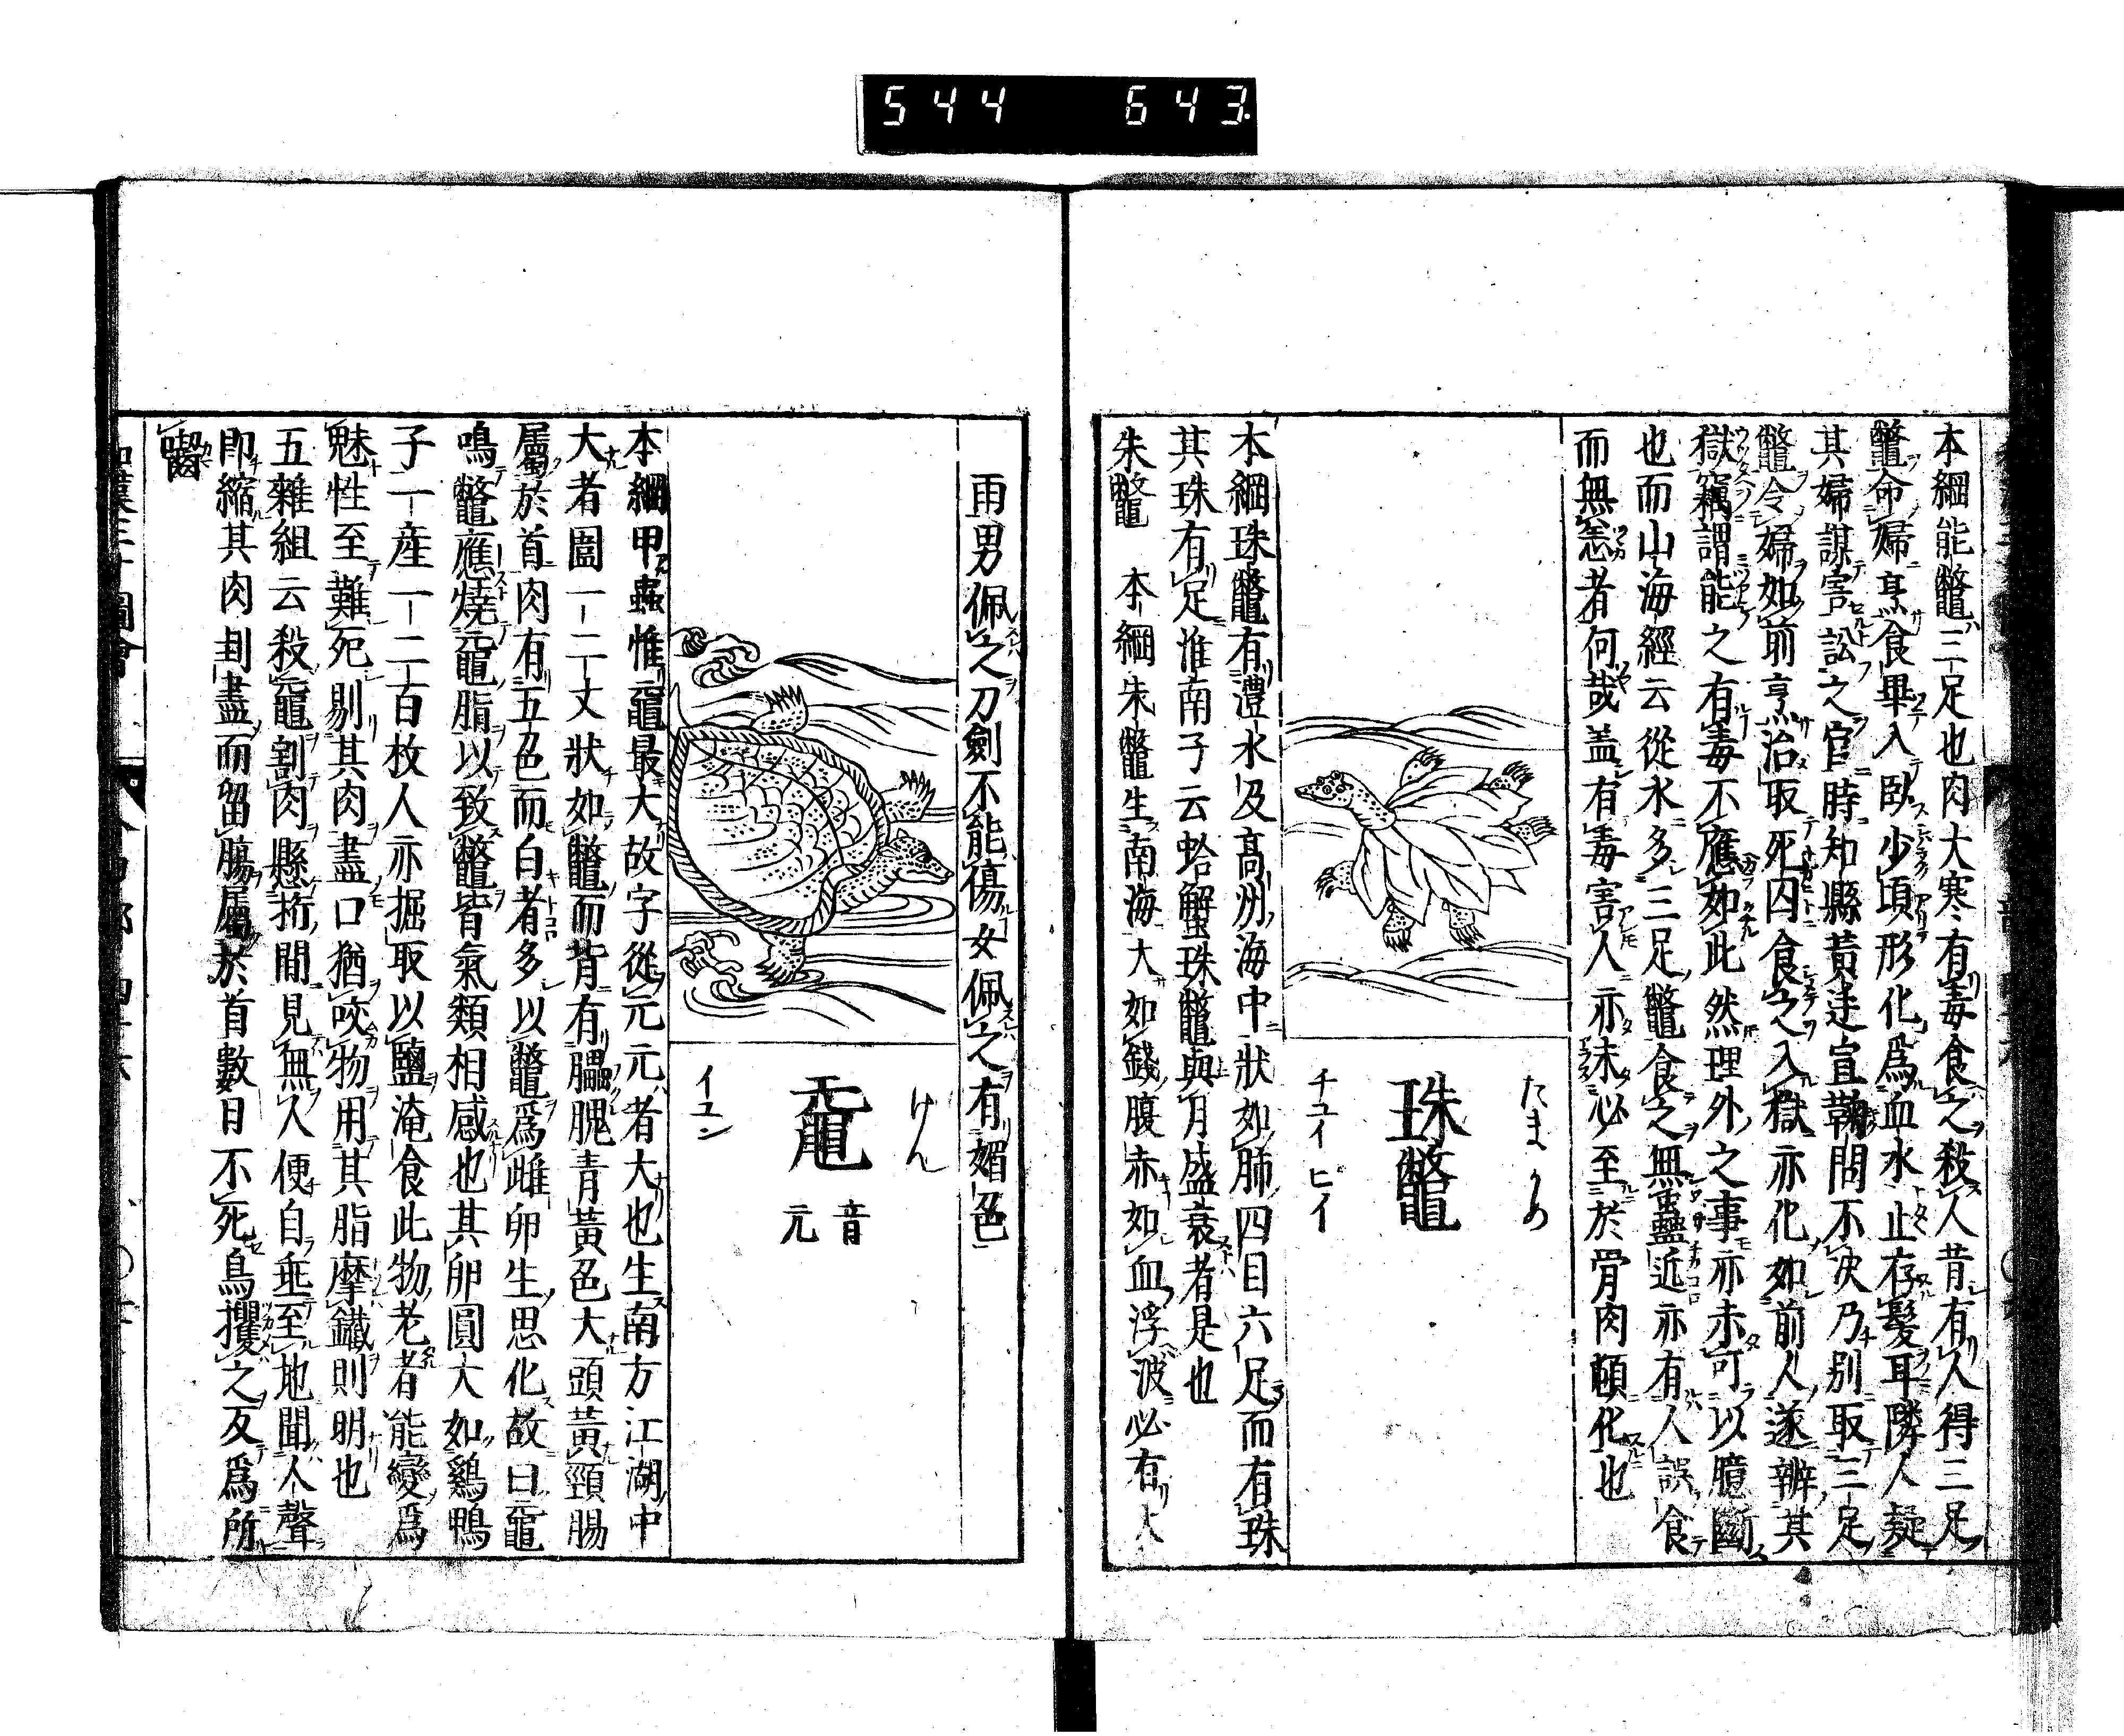 544 643
本綱能鼈三足也肉大寒有毒食之殺人昔有人得三足
鼈命婦烹食畢入臥少頃形化爲血水止存髮耳隣人疑
其婦謀害訟之官時知縣黃廷宣鞠問不決乃別取三足
鼈令婦如前烹治取死囚食之入獄亦化如前人遂辨其
獄竊謂能之有毒不應如此然理外之事亦未可以臆斷
也而山海經云從水多三足鼈食之無蠱近亦有人誤食
而無恙者何哉盖有毒害人亦未必至於骨肉頓化也
たまかめ
珠鼈
チユイ ピイ
本綱珠鼈有澧水及高州海中狀如肺四目六足而有珠
其珠有足淮南子云蛤蟹珠鼈與月盛衰者是也
朱鼈 本綱朱鼈生南海大如錢腹赤如血浮波必有大
雨男佩之刀劍不能傷女佩之有媚色
げん
黿 音元
イユン
本綱甲蟲惟黿最大故字從元元者大也生南方江湖中
大者圍一二丈狀如鼈而背有䐔腲青黃色大頭黃頸腸
屬於首肉有五色而白者多以鼈爲雌卵生思化故曰黿
鳴鼈應燒黿脂以致鼈皆氣類相感也其卵圓大如鷄鴨
子一産一二百枚人亦掘取以鹽淹食此物老者能變爲
魅性至難死剔其肉盡口猶咬物用其脂摩鐵則明也
五雜組云殺黿割肉懸桁間見無人便自垂至地聞人聲
即縮其肉刲盡而留腸屬於首數日不死鳥攫之反爲所
齧